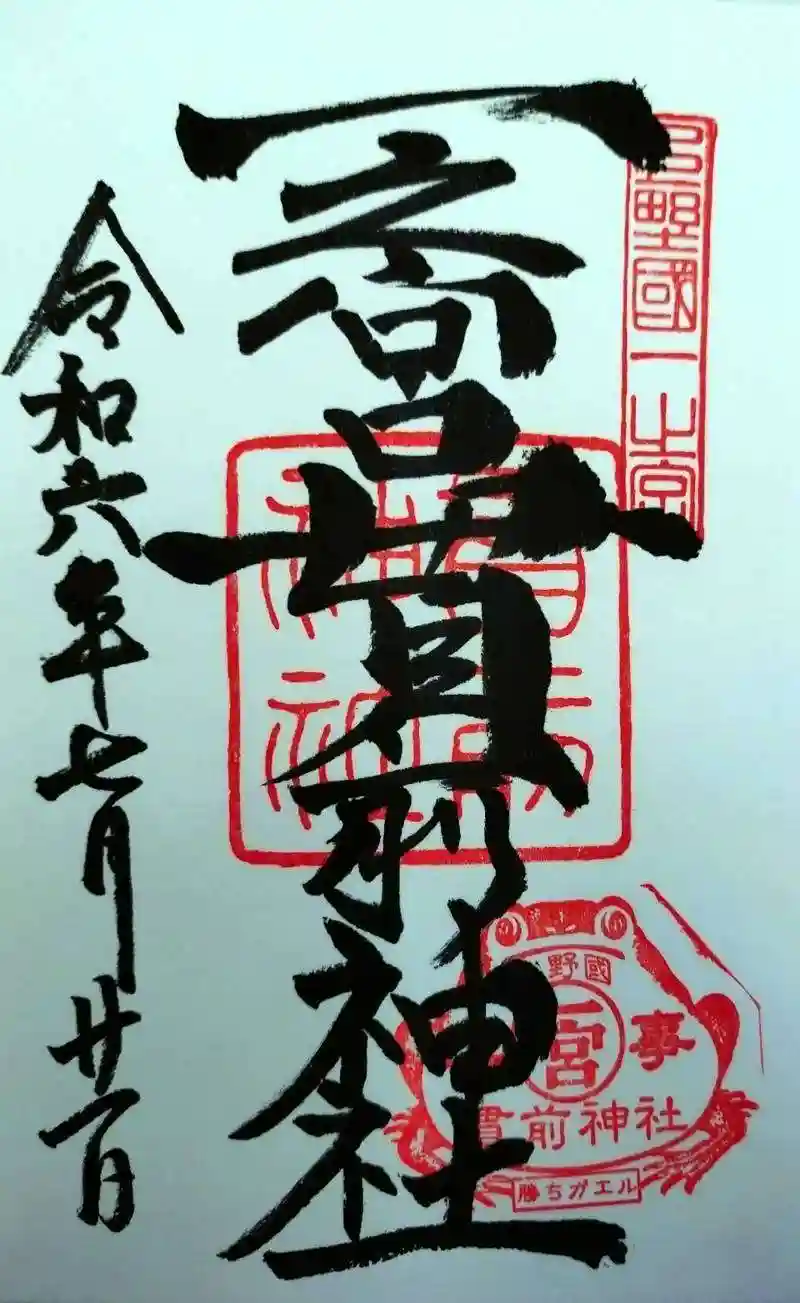 上野國一之宮
一之宮貫前神社
貫前神社
野國
一宮
事
貫前神社
勝ちガエル
令和六年七月廿一日